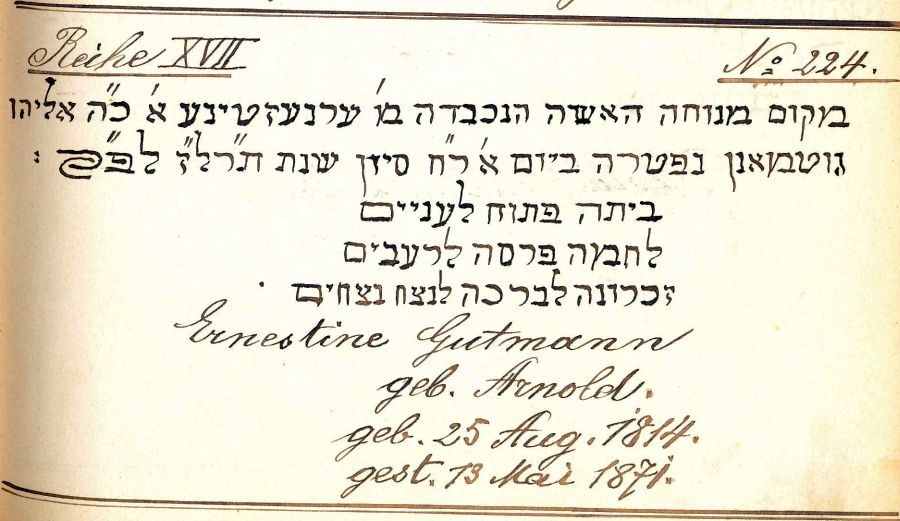 Reihe XVII No 224.
מקום מנוחה האשה הנכבדה מ' ערנעזטינע א' כ"ה אליהו
גוטמאנן נפטרה ביום א' ר"ח סיון שנת תרל"ז לפ"ק :
ביתה פתוח לעניים
לחמה פרסה לרעבים
זכרונה לברכה לנצח נצחים .
Ernestine Gutmann
geb. Arnold.
geb. 25 Aug. 1814.
gest. 13 Mai 1877.